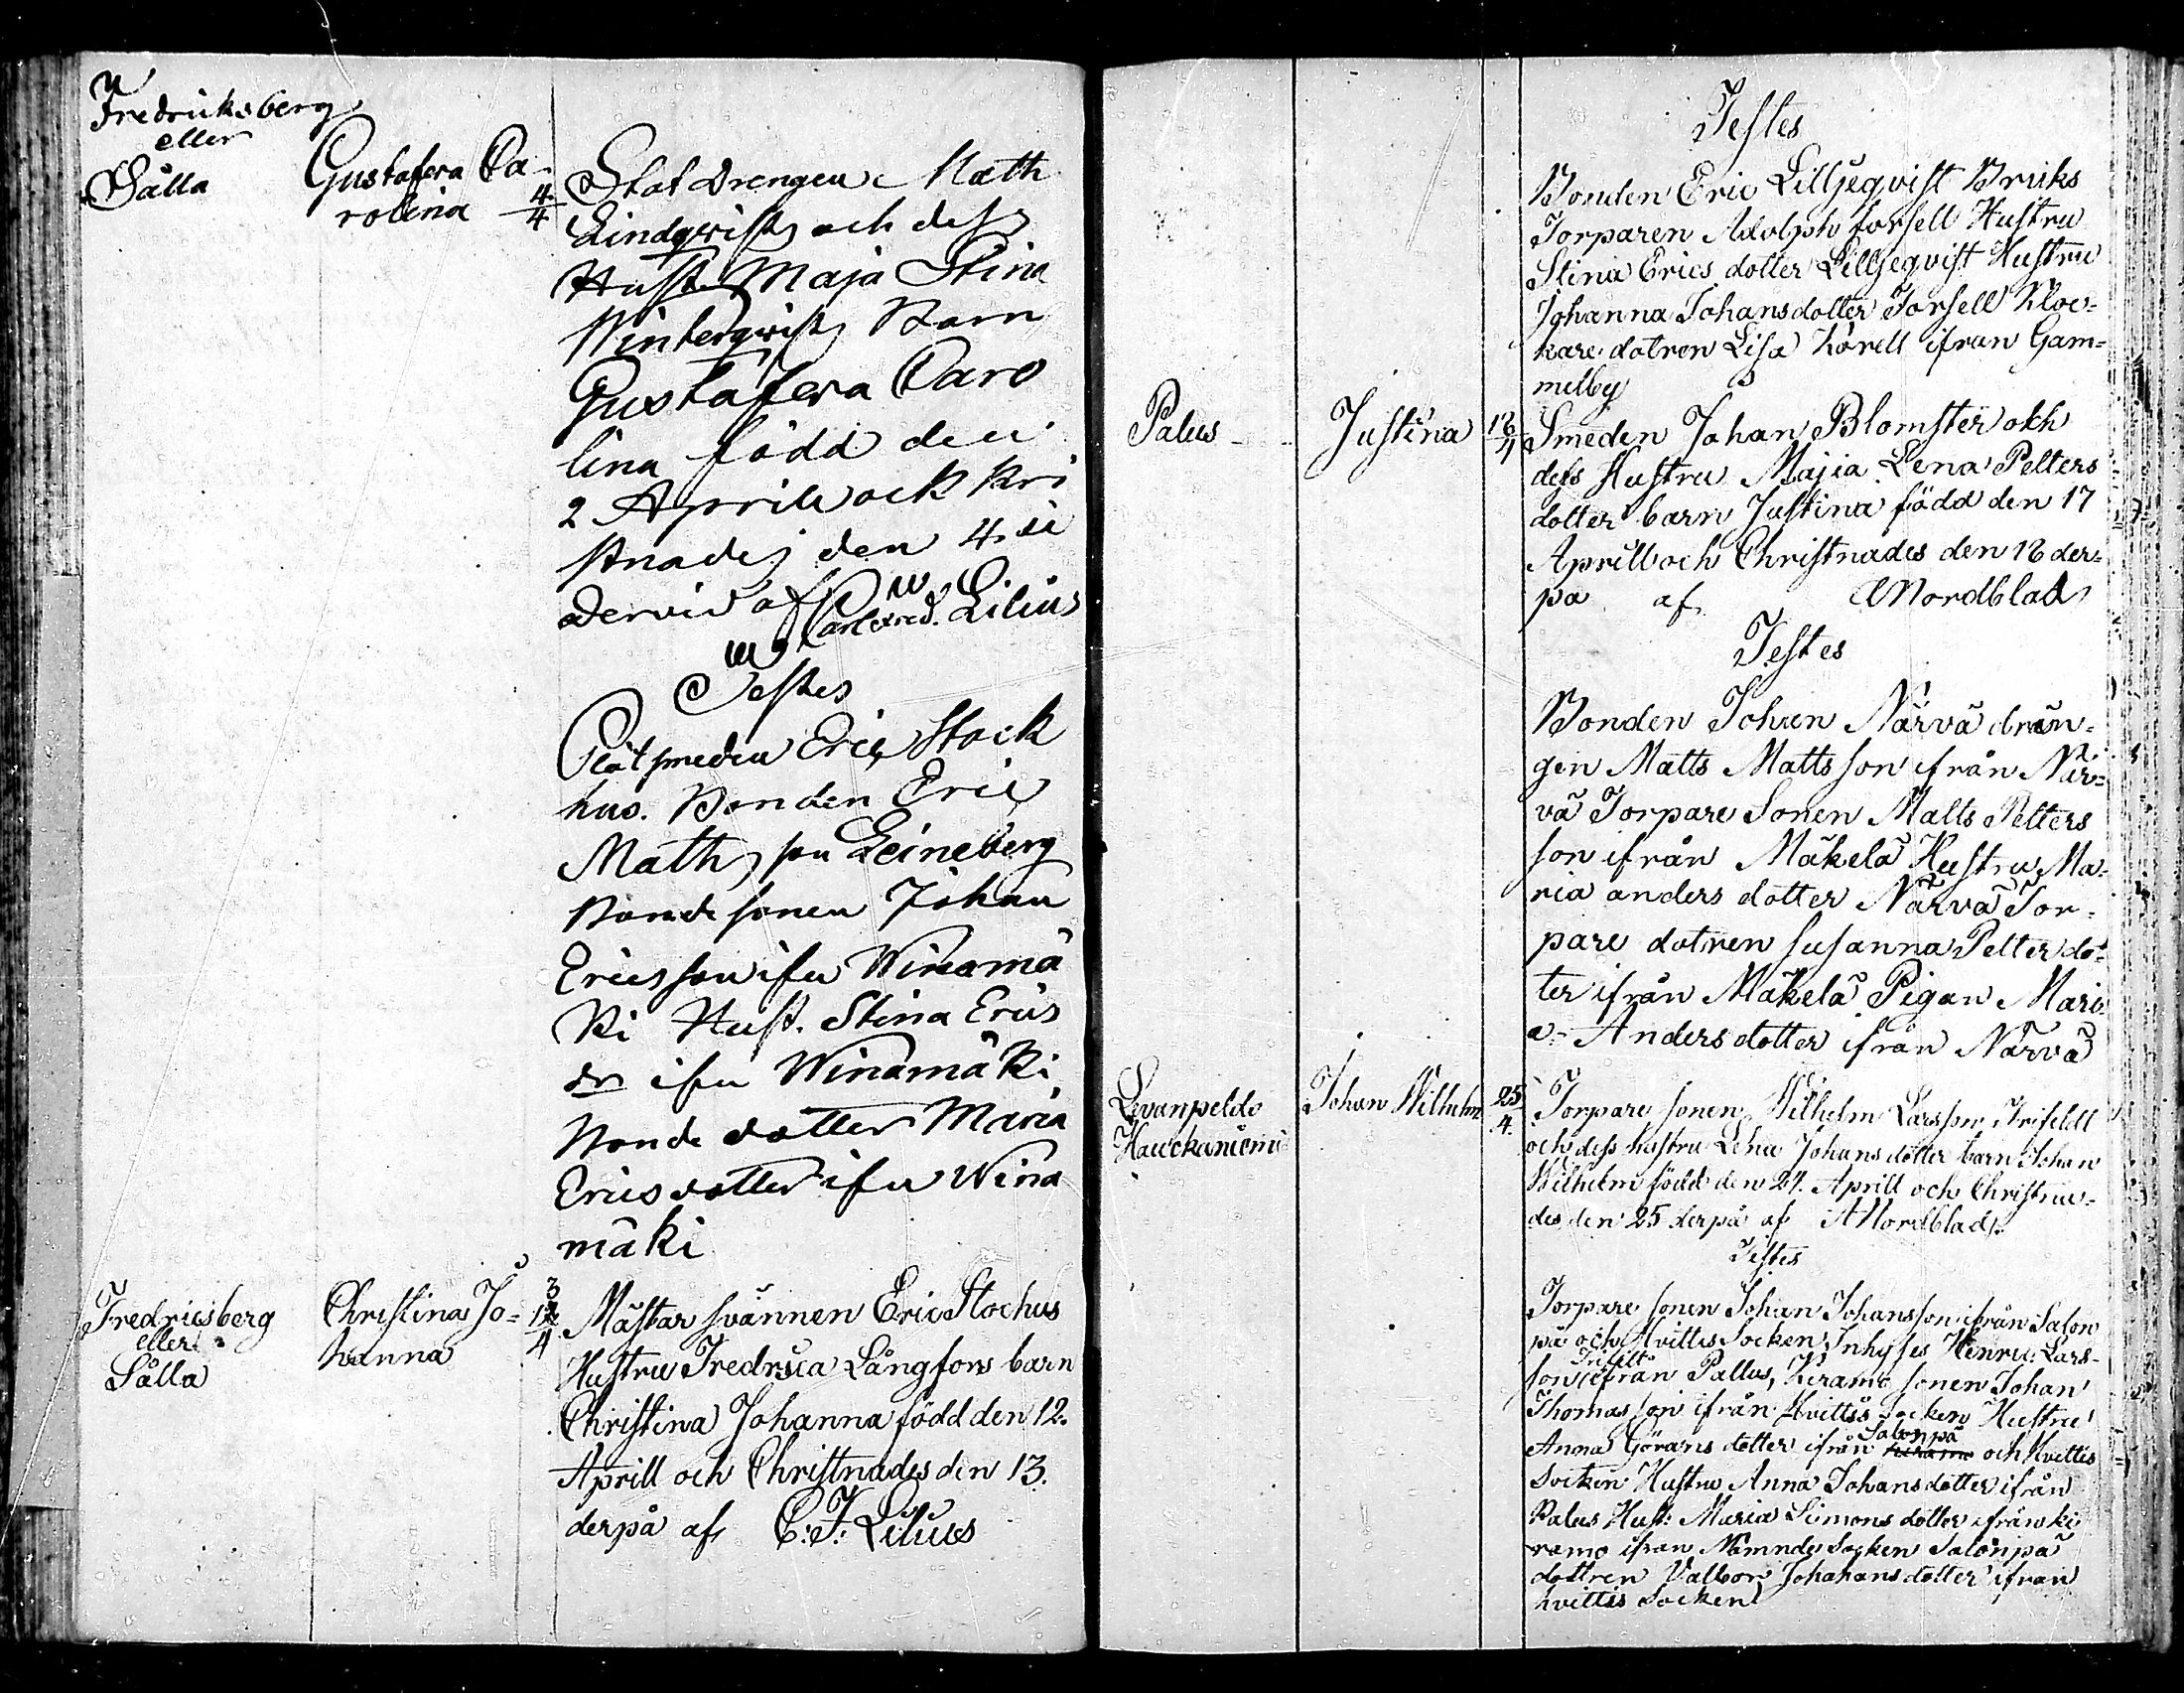 Fredricksberg
eller
Sålla
Gustafva Ca-
rolina
4/4
Stat Drengen Math
Lindqvist och dess
Hust. Maja Stina
Winterqvist Barn
Gustafeva Caro
lina född den
2 Aprill ock kri
stnades den 4.
dervid af Carl Fred. Lilius
Testes
Plåtsmeden Eric Stock
hus. Bonden Eric
Maths son Leineberg
Bonde sonen Johan
Ericsson ifrn Winamä
ki Hust. Stina Erics
dr ifrn Winämäki
Bonde dotter Maria
Ericsdotter ifrn Wina
mäki
Fredricsberg
eller
Sålla
Christina Jo=
hanna
13/4
Mästar svännen Eric Stochus
Hustru Fredrica Långfors barn
Christina Johanna född den 12.
Aprill och Christnades den 13.
derpå af C: F: Lilius
Testes
Bonden Eric Lilljeqvist Bruks
Torparen Adolph forsell Hustru
Stina Erics dotter Lilljeqvist Hustru
Johanna Johansdotter Forsell Kloc=
kare dotren Lisa Lorell ifrån Gam=
melby
Palus
Justina
18/4
Smeden Johan Blomster okh
dess Hustru Majia Lena Petters
dotter barn Justina född den 17
Aprill och Christnades den 18 der=
på af Nordblad
Testes
Bonden Johan Närvä drän=
gen Matts Mattsson ifrån När=
vä Torpare Sonen Matts Petters
son ifrån Mäkelä Hustru Ma=
ria anders dotter Närvä Tor=
pare dotren Susanna Petter do=
ter ifrån Mäkelä Pigan Mari
a- Anders dotter ifrån Närvä
Levanpeldo
Hauckaniemi
Johan Wilhelm
25/4.
Torpare sonen Wilhelm Larsson Trifeldt
och dess hustru Lena Johans dotter barn Johan
Wilhelm född den 24. Aprill och Christna=
des den 25 derpå af A Nordblad.
Testes
Torpare sonen Johan Johansson ifrån Salon
pä och Hvittis Socken, Inhyses Henric Lars=
Trifelt
son ifrån Pallus, Keramo sonen Johan
Thomas son ifrån Hvittis Socken Hustru
Salonpä
Anna Görans dotter ifrån och Hvittis
Socken Hustru Anna Johansdotter ifrån
Palus Hust: Maria Simons dotter ifrån ki
ramo ifrån Nämnde Socken Salonpä
dottren Valbor Johahans dotter ifrån
hvittis Socken